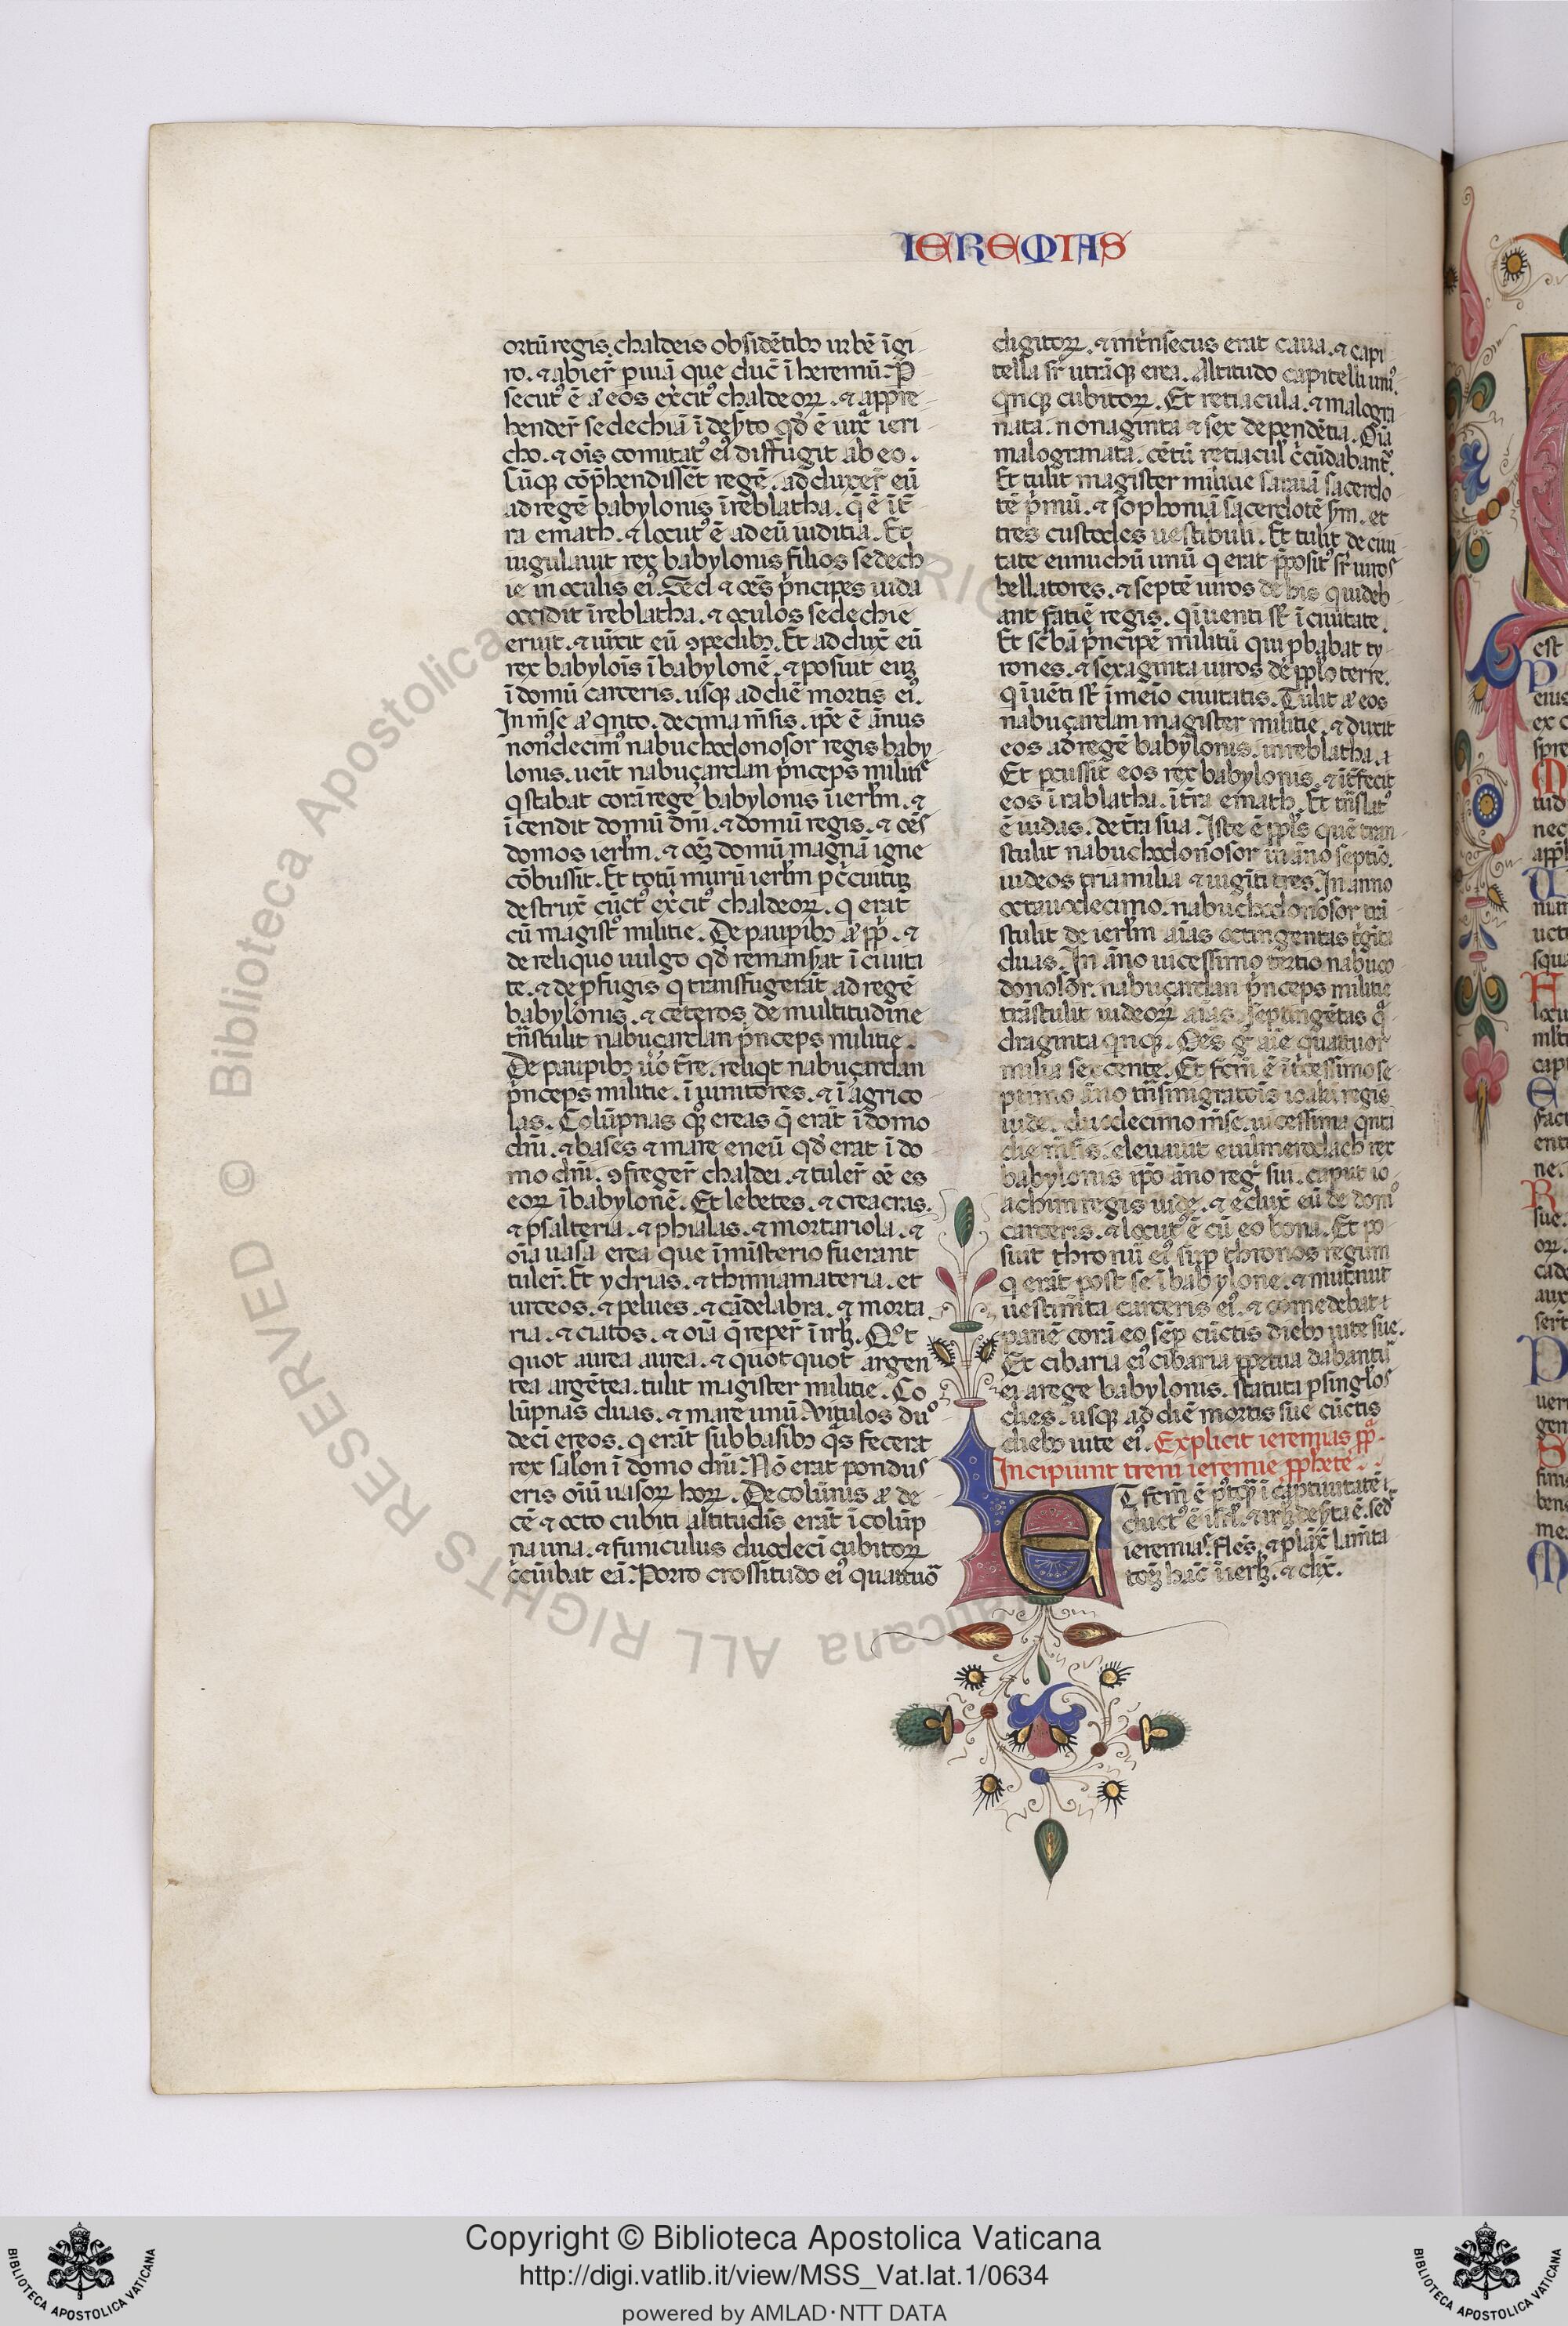 IEREMIAS
ortũ regis. chaldeis obsidẽtibꝫ urbẽ ĩ gi-
ro. ⁊ abier̃ ꝑ uiã que duc̃ ĩ heremũ. P̲
secutꝰ ẽ aũ eos ex̃citꝰ chaldeoꝝ. ⁊ appre-
hender̃ sedechiã ĩ des̃to qđ ẽ iux̃ ieri-
cho. ⁊ oĩs comitatꝰ eiꝰ diffugit ab eo.
Cũqꝫ cõp̃hendissẽt regẽ. adduxer̃ eũ
ad regẽ babylonis ĩ reblatha. q̃ ẽ ĩ t̃-
ra emath. ⁊ locutꝰ ẽ ad eũ iuditia. Et
iugulauit rex babylonis filios sedech-
ie in oculis eiꝰ. Sed ⁊ oẽs p̃ncipes iuda
occidit ĩ reblatha. ⁊ oculos sedechie
eruit. ⁊ uĩxit eũ ꝯpedibꝫ. Et addux̃ eũ
rex babyloĩs ĩ babylonẽ. ⁊ posuit euꝫ
ĩ domũ carceris. usqꝫ ad diẽ mortis eiꝰ.
In m̃se aũ qnto. decima m̃sis. ip̃e ẽ annus
nonꝰdecimꝰ nabuchodonosor regis baby-
lonis. uẽit nabuçardan p̃nceps militie
q̃ stabat corã rege babylonis ĩ ierl̃m. ⁊
ĩcendit domũ dñi. ⁊ domũ regis. ⁊ oẽs
domos ierl̃m. ⁊ oẽꝫ domũ magnã igne
cõbussit. Et totũ murũ ierl̃m ꝑ c̃cuituꝫ
destrux̃ cũctꝰ ex̃citꝰ chaldeoꝝ. q̃ erat
cũ magist̃ militie. De pauꝑibꝫ aũ pp̃. ⁊
de reliquo uulgo qđ remans̃at ĩ ciuita
te. ⁊ de ꝓfugis q̃ transfugerãt ad regẽ
babylonis. ⁊ ceteros de multitudine
tr̃stulit nabuçardan p̃nceps militie.
De pauꝑibꝫ ũo t̃re. reliq̃t nabuçardan
p̃nceps militie. ĩ uinitores. ⁊ ĩ agrico-
las. Colũpnas qꝫ ereas q̃ erãt ĩ domo
dñi. ⁊ bases ⁊ mare eneũ qđ erat ĩ do
mo dñi. ꝯfreger̃ chaldei. ⁊ tuler̃ oẽ es
eoꝝ ĩ babylonẽ. Et lebetes. ⁊ creacras.
⁊ psalteria. ⁊ phialas. ⁊ mortariola. ⁊
oĩa uasa erea que ĩ mĩsterio fuerant
tuler̃. Et ydrias. ⁊ thimiamateria. et
urceos. ⁊ pelues. ⁊ cãdelabra. ⁊ morta
ria. ⁊ ciatos. ⁊
quot aurea aurea. ⁊ quotquot argen
tea argẽtea. tulit magister militie. Co
lũpnas duas. ⁊ mare unũ. Vitulos duo
deci ereos. q̃ erãt sub basibꝫ q̃s fecerat
rex salon ĩ domo dñi. Nõ erat pondus
eris oĩũ uasoꝝ hoꝝ. De colũnis aũ de-
cẽ ⁊ octo cubiti altitudĩs erãt ĩ colũp
na una. ⁊ funiculus duodeci cubitoꝝ
c̃cuibat eã. Porro crossitudo eiꝰ quattuõ
digitoꝝ. ⁊ intrĩsecus erat caua. ⁊ capi
tella sr̃ utrãqꝫ erea. Altitudo capitelli uniꝰ.
qnqꝫ cubitoꝝ. Et retiacula. ⁊ malogra
nata. nonaginta ⁊ sex dependẽtia. Oĩa
malogranata. cẽtũ retiacul̃ c̃cũdabant̃.
Et tulit magister militie saraiã sacerdo-
tẽ p̃mũ. ⁊ sophoniã sacerdotẽ s̃m. et
tres custodes uestibuli. Et tulit de ciui-
tate eunuchũ unũ q̃ erat p̃positꝰ sr̃ uiros
bellatores. ⁊ septẽ uiros de his q̃ uideb-
ant fatiẽ regis. q̃ ĩuenti sũt ĩ ciuitate.
Et sc̃bã p̃ncipẽ militũ qui ꝓbabat ty-
rones. ⁊ sexaginta uiros de pp̃lo terre.
q̃ ĩuẽti sũt ĩ meĩo ciuitatis. Tulit aũ eos
nabuçardan magister militie. ⁊ duxit
eos ad regẽ babylonis. in reblatha.
Et ꝑcussit eos rex babylonis. ⁊ ĩt̃fecit
eos ĩ rablatha. ĩ t̃ra emath. Et tr̃slatꝰ
ẽ iudas. de t̃ra sua. Iste ẽ pp̃ls quẽ tran-
stulit nabuchodonosor in ãno septĩo.
iudeos tria milia ⁊ uigĩti tres. In anno
octauodecimo. nabuchodonosor trã-
stulit de ierl̃m aĩas octingentas t̃gĩta
duas. In ãno uicessimo tertio nabuco-
donosõr. nabuçardan p̃nceps militie
trãstulit iudeoꝝ aĩas septingẽtas q̃-
draginta qnqꝫ. Oẽs g̃ aĩe quattuor
milia sexcente. Et fc̃m ẽ ĩ t̃cessimo se
ptimo ãno tr̃smigratõis ioakĩ regis
iude. duodecimo m̃se. uicessima qnta
die m̃sis. eleuauit euilmerodach rex
babylonis ip̃o ãno reg̃ sui. caput io-
achim regis iude. ⁊ edux̃ eũ de domo
carceris. ⁊ locutꝰ ẽ cũ eo bona. Et po
suit thronũ eiꝰ suꝑ thronos regum
q̃ erãt post se ĩ babylone. ⁊ mutauit
uestim̃ta carceris eiꝰ. ⁊ comedebat
panẽ corã eo sẽp cũctis diebꝫ uite sue.
Et cibaria eiꝰ cibaria ꝑpetua dabantur̃
ei a rege babylonis. statuta ꝑ singlos
dies. usqꝫ ad diẽ mortis sue cũctis
diebꝫ uite eiꝰ. Explicit ieremias pp̃.
Incipiunt treni ieremie pp̃hete.
ET fc̃m ẽ ptq̃ꝫ ĩ captiuitatẽ
ductꝰ ẽ isr̃l. ⁊ irl̃ꝫ des̃ta ẽ. sed
ieremias. fles. ⁊ plãx̃ lam̃ta
toꝫ hãc ĩ ierl̃ꝫ. ⁊ dix̃.
© Biblioteca Apostolica Vaticana ALL RIGHTS RESERVED
Copyright © Biblioteca Apostolica Vaticana
http://digi.vatlib.it/view/MSS_Vat.lat.1/0634
powered by AMLAD·NTT DATA
BIBLIOTECA APOSTOLICA VATICANA
BIBLIOTECA APOSTOLICA VATICANA